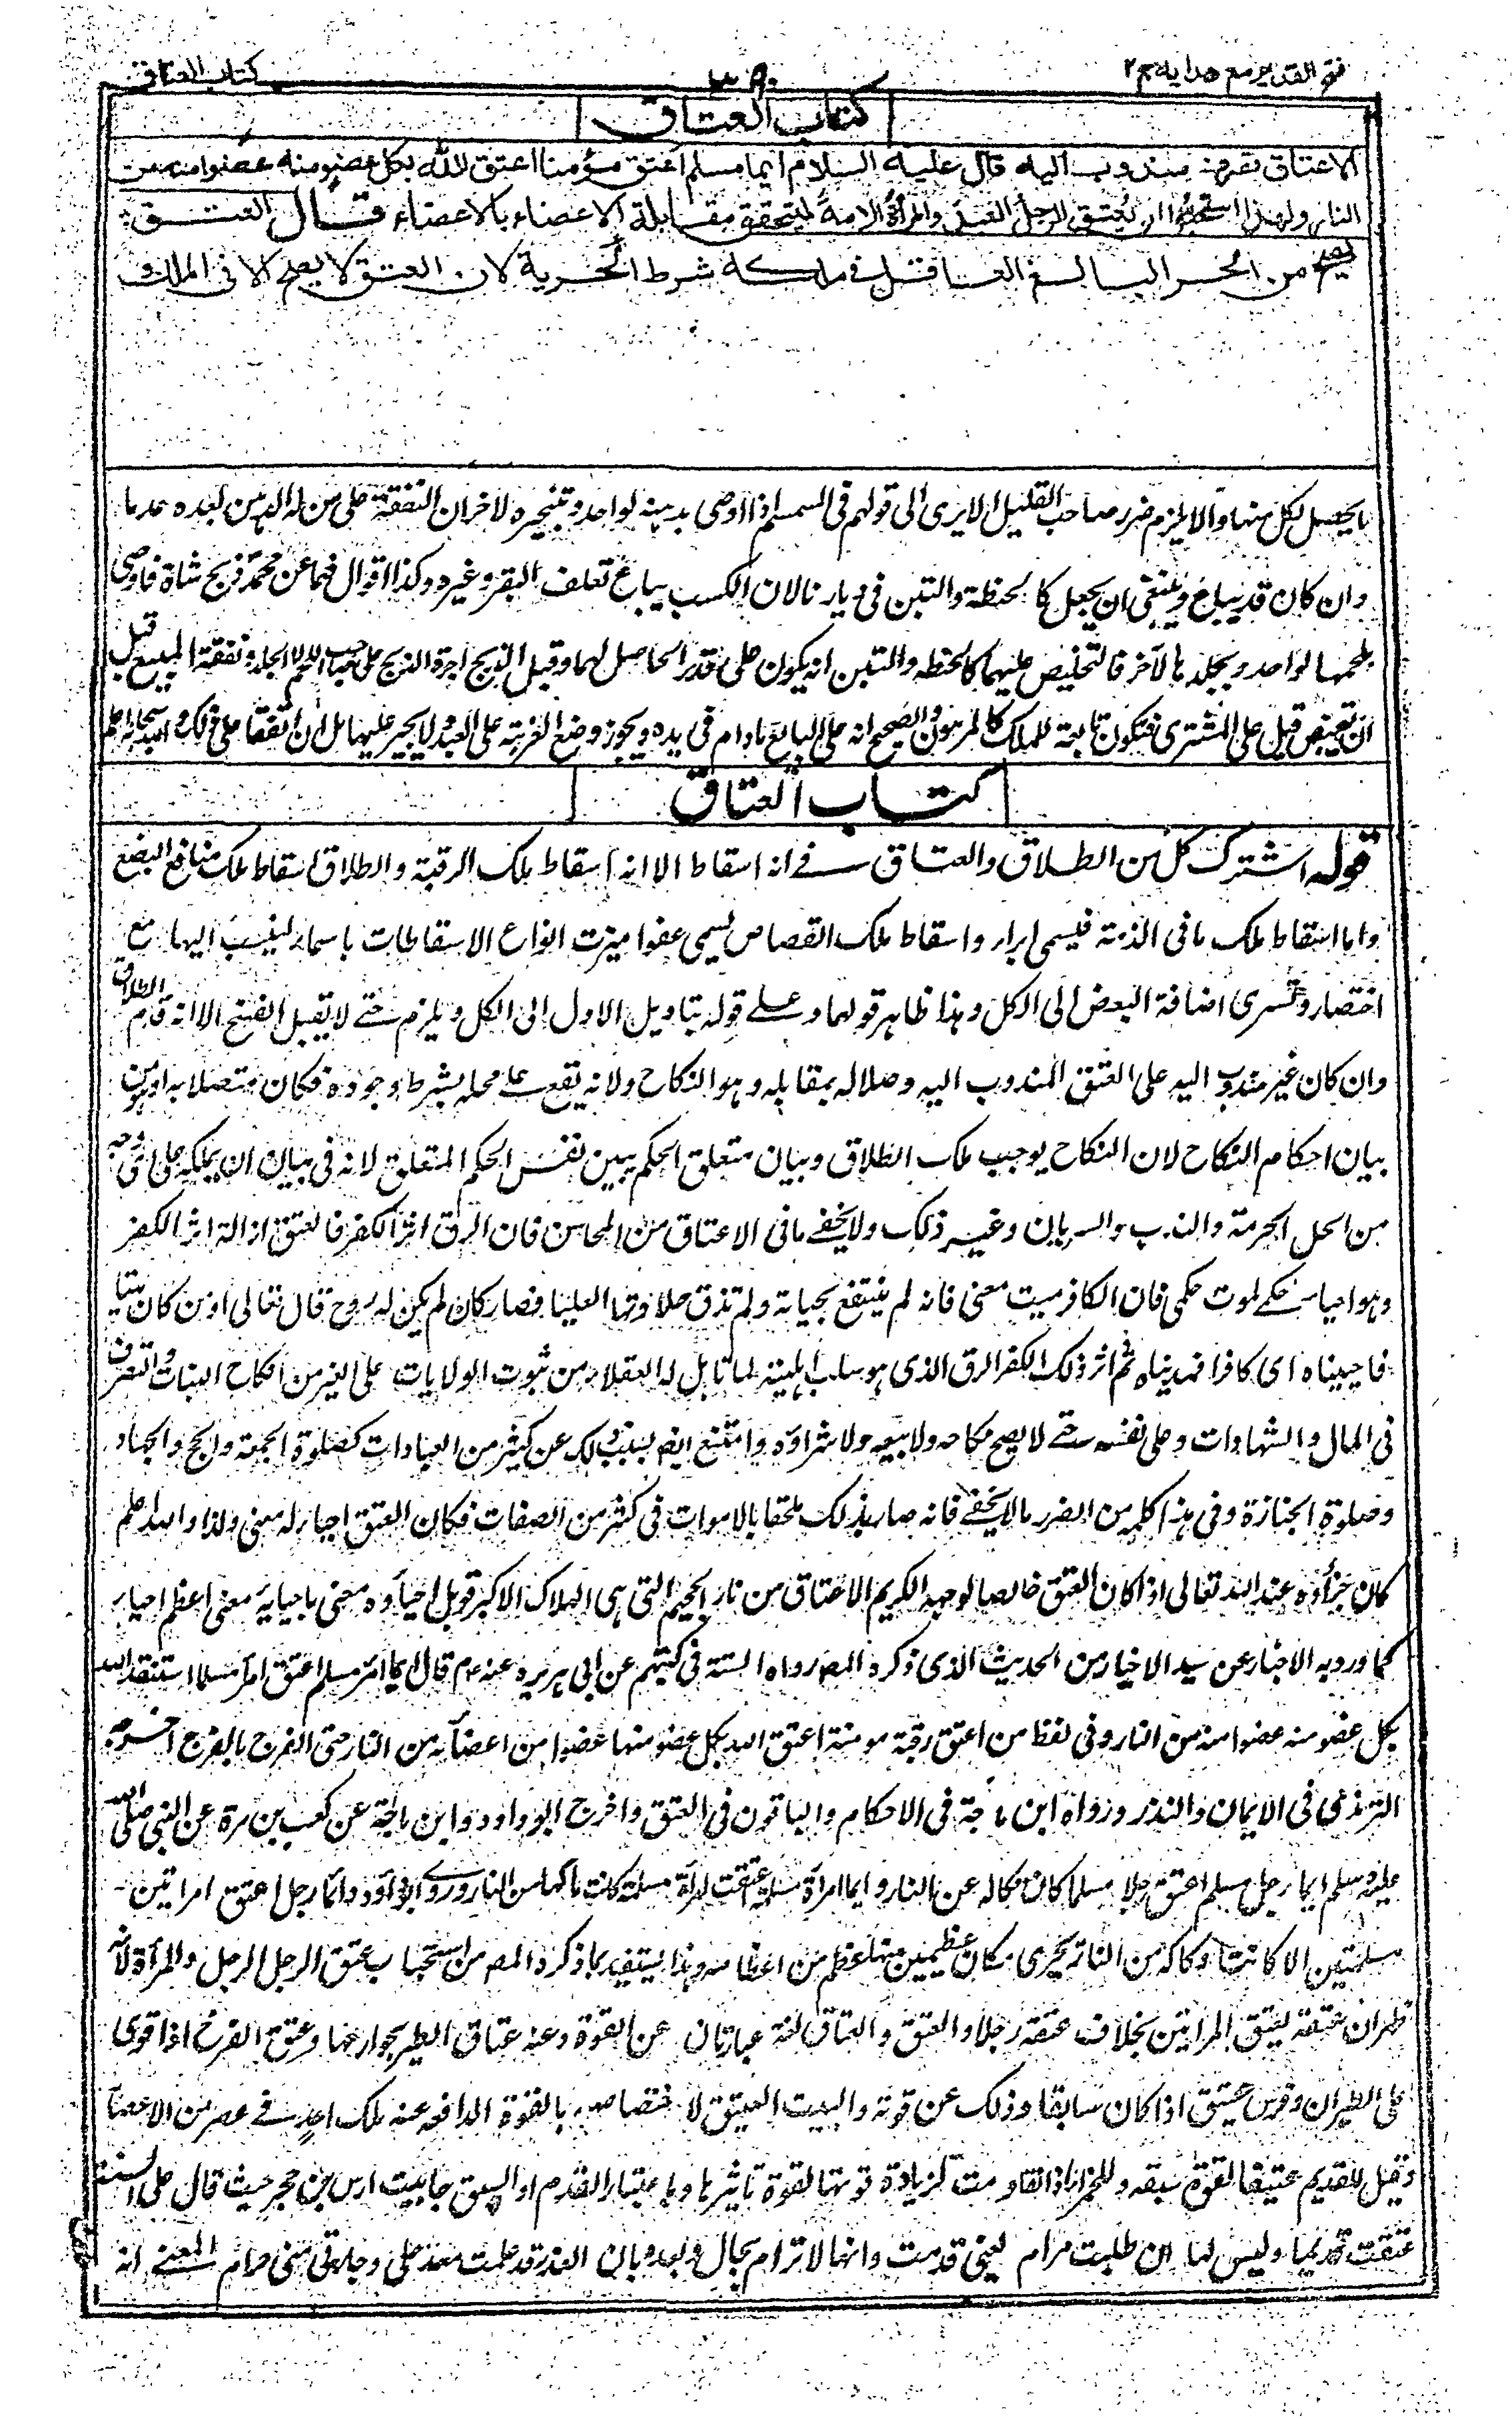 فتح القدير مع هدايه ج ٢
كتاب العتاق
كتاب العتاق
الاعتاق تصرف مندوب اليه قال عليه السلام ايما مسلم اعتق مؤمنا اعتق الله بكل عضو منه عضوا منه من
النار ولهذا استحبوا ان يعتق الرجل العبد والمرأة الامة ليتحقق مقابلة الاعضاء بالاعضاء قال العتق
يصح من الحر البالغ العاقل في ملكه شرط الحرية لان العتق لا يصح الا فى الملك
ما يحصل لكل منهما والا يلزم ضرر صاحب القليل الا يرى الى قولهم فى السمسم اذا اوصى بدهنه لواحد وبثجيره لاخر ان النفقة على من له الدهن لعده عدما
وان كان قد يباع وينبغى ان يجعل كالحنطة والتبن فى ديارنا لان الكسب يباع لعلف البقر وغيره وكذا اقول فيما عن محمد ذبح شاة فاوصى
بلحمها لواحد وبجلدها لآخر فالتخليص عليهما كالحنطه والتبن انه يكون على قدر الحاصل لهما وقبل الذبح اجرة الذبح على صاحب اللحم لا الجلد ونفقة المبيع قبل
ان يقبض قيل على المشترى فتكون تابعة للملك كالمرهون والصحيح انه على البائع ما دام فى يده ويجوز وضع الضريبة على العبد ولا يجبر عليها بل ان اتفقا على ذلك والله سبحانه اعلم
كتاب العتاق
قوله اشترك كل من الطلاق والعتاق فى انه اسقاط الا انه اسقاط ملك الرقبة والطلاق اسقاط ملك منافع البضع
واما اسقاط ملك ما فى الذمة فيسمى ابراء واسقاط ملك القصاص يسمى عفوا ميزت انواع الاسقاطات باسماء لينسب اليها مع
اختصار وتسرى اضافة البعض الى الكل وهذا ظاهر قولهما وعلى قوله بتاويل الاول الى الكل ويلزم حتى لا يقبل الفسخ الا انه قدم الطلاق
وان كان غير مندوب اليه على العتق المندوب اليه وصلا له بمقابله وهو النكاح ولانه يقع على محله بشرط وجوده فكان متصلا به اوهو من
بيان احكام النكاح لان النكاح يوجب ملك الطلاق وبيان متعلق الحكم يبين نفس الحكم المتعلق لانه فى بيان ان يملكه على اى وجه
من الحل الحرمة والندب والسريان وغير ذلك ولا يخفى ما فى الاعتاق من المحاسن فان الرق اثر الكفر فالعتق ازالة اثر الكفر
وهو احياء حكمى لموت حكمى فان الكافر ميت معنى فانه لم ينتفع بحياته ولم تذق حلاوتها العليا فصار كان لم يكن له روح قال تعالى اومن كان ميتا
فاحييناه اى كافرا فهديناه ثم اثر ذلك الكفر الرق الذى هو سلب اهليته لما تاهل له العقلاء من ثبوت الولايات على الغير من انكاح البنات والتصرف
فى المال والشهادات وعلى نفسه حتى لا يصح نكاحه ولا بيعه ولا شراؤه وامتنع ايضا بسبب ذلك عن كثير من العبادات كصلوة الجمعة والحج والجهاد
وصلوة الجنازة وفى هذا كله من الضرر ما لا يخفى فانه صار بذلك ملحقا بالاموات فى كثير من الصفات فكان العتق احياء له معنى ولذا والله اعلم
كان جزاؤه عند الله تعالى اذا كان العتق خالصا لوجهه الكريم الاعتاق من نار الجحيم التى هى الهلاك الاكبر قوبل احياؤه معنى باحيائه معنى اعظم احياء
كما ورد به الاخبار عن سيد الاخيار من الحديث الذى ذكره المصـ رواه الستة فى كتبهم عن ابى هريرة عنه عم قال ايما امرء مسلم اعتق امرء مسلما استنقذ الله
بكل عضو منه عضوا منه من النار وفى لفظ من اعتق رقبة مومنة اعتق الله بكل عضو منها عضوا من اعضائه من النار حتى الفرج بالفرج اخرجه
الترمذى فى الايمان والنذر ورواه ابن ماجة فى الاحكام والباقون فى العتق واخرج ابو داود وابن ماجة عن كعب بن مرة عن النبى صلى الله
عليه وسلم ايما رجل مسلم اعتق رجلا مسلما كان فكاكه عن النار وايما امرأة مسلمة اعتقت امرأة مسلمة كانت فكاكها من النار وروى ابو داود وايما رجل اعتق امراتين
مسلمتين الا كانتا فكاكه من النار يجزى مكان عظمين منهما عظم من اعظامه وهذا يستفيد ما ذكره المصـ من استحباب عتق الرجل الرجل والمرأة لانه
ظهر ان عتقه بعتق المراتين بخلاف عتقه رجلا والعتق والعتاق لغة عبارتان عن القوة وعنه عتاق الطير لجوارحها وعتق الفرخ اذا قوى
على الطيران وفرس عتيق اذا كان سابقا وذلك عن قوته والبيت العتيق لاختصاصه بالقوة الدافعه عنه ملك احد فى عصر من الاعصار
وقيل للقديم عتيق لقوة سبقه وللخمر اذا تقادمت لزيادة قوتها لقوة تاثيرها وباعتبار القدم او السبق جاء بيت اوس بن حجر حيث قال على السنة
عتقت قديما وليس لها ان طلبت مرام يعنى قدمت وانها لا ترام بحال